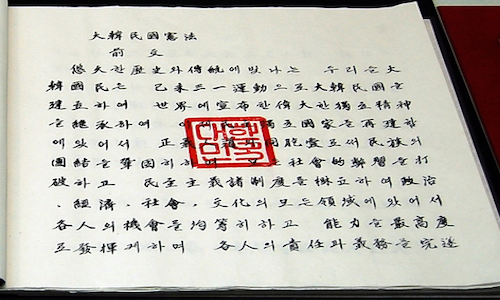 大韓民國憲法
前文
悠久한 歷史와 傳統에 빛나는 우리들 大
韓國民은 己未三一運動으로 大韓民國을
建立하여 世界에 宣布한 偉大한 獨立精神
을 繼承하여 이제 民主獨立國家를 再建함
에 있어서 正義人道와 同胞愛로써 民族의
團結을 鞏固히하며 모든 社會的 弊習을 打
破하고 民主主義諸制度를 樹立하여 政治
, 經濟, 社會, 文化의 모든 領域에 있어서
各人의 機會를 均等히하고 能力을 最高度
로 發揮케하며 各人의 責任과 義務를 完遂
대한
민국